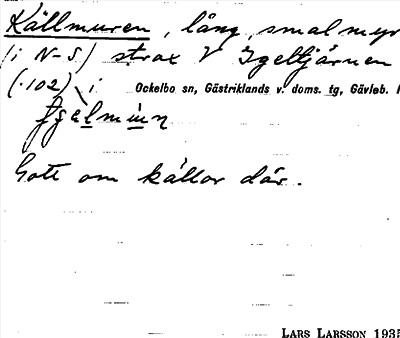 Källmuren, lång, smal myr
(i N-S) strax V Igeltjärnen
(·102) i Ockelbo sn, Gästriklands v. doms. tg, Gävleb. l
Gott om källor där.
LARS LARSSON 1935